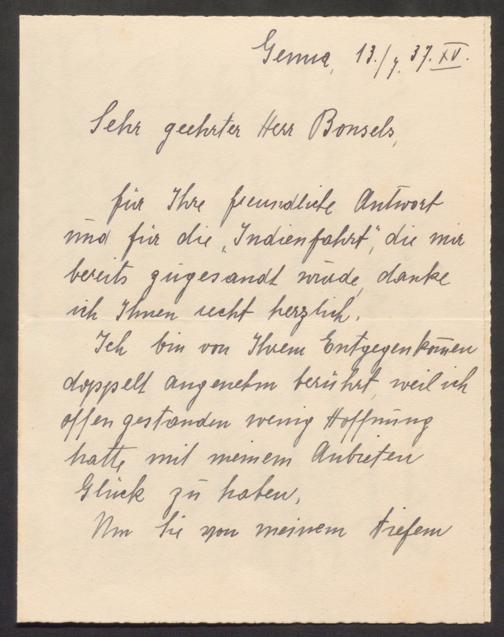 Genua, 13./7. 37. XV.
Sehr geehrter Herr Bonsels,
für Ihre freundliche Antwort
und für die „Indienfahrt“, die mir
bereits zugesandt wurde, danke
ich Ihnen recht herzlich.
Ich bin von Ihrem Entgegenkommen
doppelt angenehm berührt, weil ich
offen gestanden wenig Hoffnung
hatte mit meinem Anbieten
Glück zu haben.
Um Sie von meinem tiefem